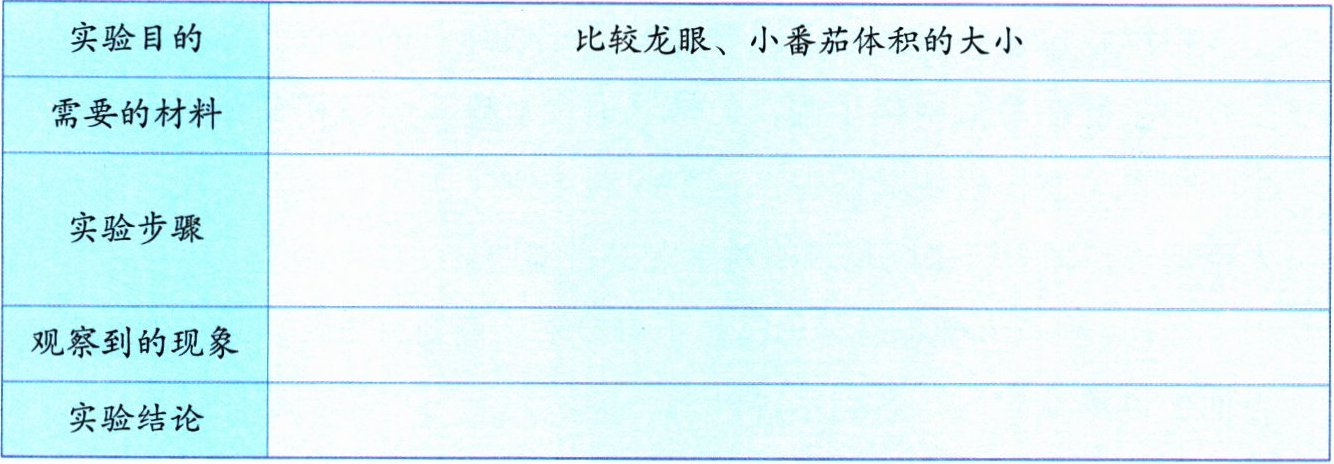 实验目的
比较龙眼、小番茄体积的大小
需要的材料
实验步骤
观察到的现象
实验结论